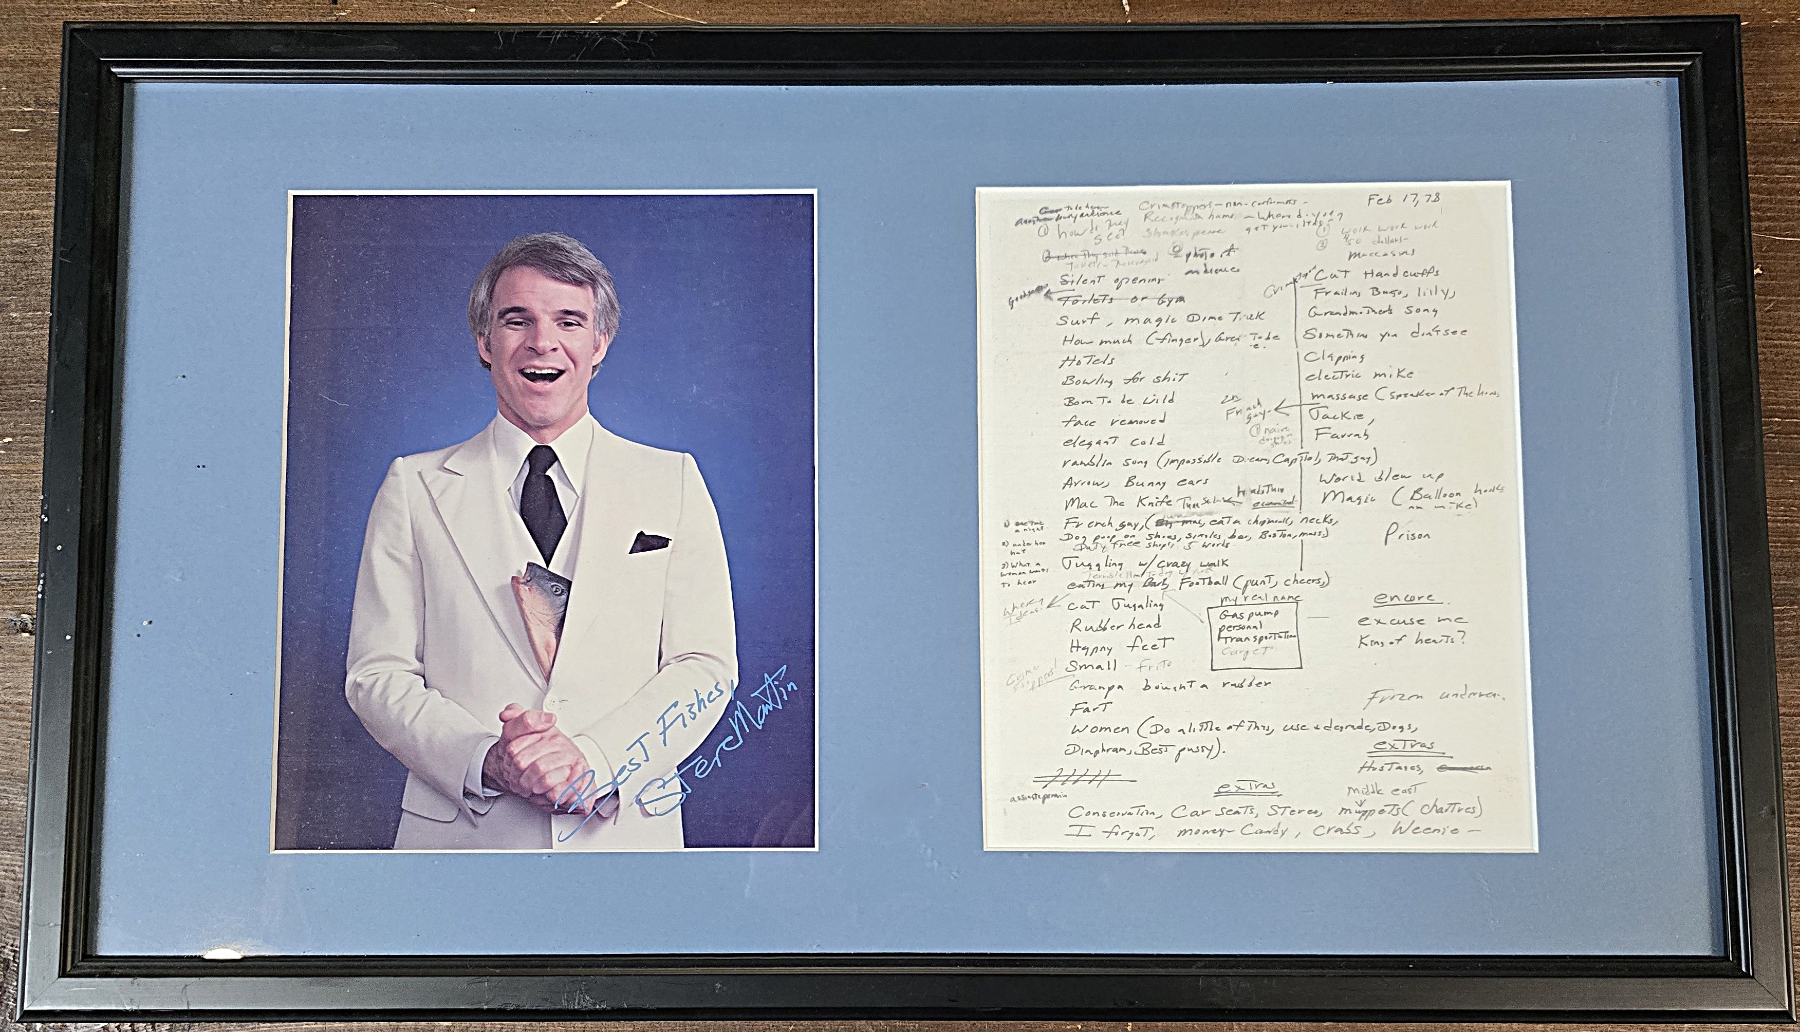 Best Fishes,
Steve Martin
Feb 17, 78
to be here
Crimestoppers - non-conformists -
audience
① how do they
Recognize - Where do you
get your ideas?
Shakespeare
① work work work
② 50 dollars -
moccasins
② photo of
audience
Silent opening
Toilets or Gym
Surf, magic Dime Trick
How much (finger), Great To be
Hotels
Bowling for shit
Born To be Wild
face removed
elegant cold
ramblin song (impossible Dream, Capitol, that guy)
Arrow, Bunny ears
Mac The Knife
French guy, eat a chipmunk, necks,
Dog poop on shoes, singles bar, Boston, mass)
Duty free shop, 5 words
Juggling w/ crazy walk
eating my Football (punt, cheers,)
Cat Juggling
Rubber head
Happy feet
Small - Frito
Granpa bought a rubber
Fart
Women (Do a little of this, use & degrade, Dogs,
Diaphram, Best pussy).
1) one time
a night
2) under her
hat
3) What a
woman wants
To hear
Where?
Ideas?
Cat Handcuffs
Frailing Banjo, lilly,
Grandmother's song
Something you don't see
Clapping
electric mike
massage (speaker of The house,
Jackie,
Farrah
in
French
guy -
World blew up
Magic (Balloon
on mike)
Prison
my real name
Gas pump
personal
Transportation
Carpet
encore
excuse me
King of hearts?
Frozen
extras
Hostages,
middle east
extras
Conservation, Car seats, Stereo, muppets (chartres)
I forgot, money - Candy, Crabs, Weenie -